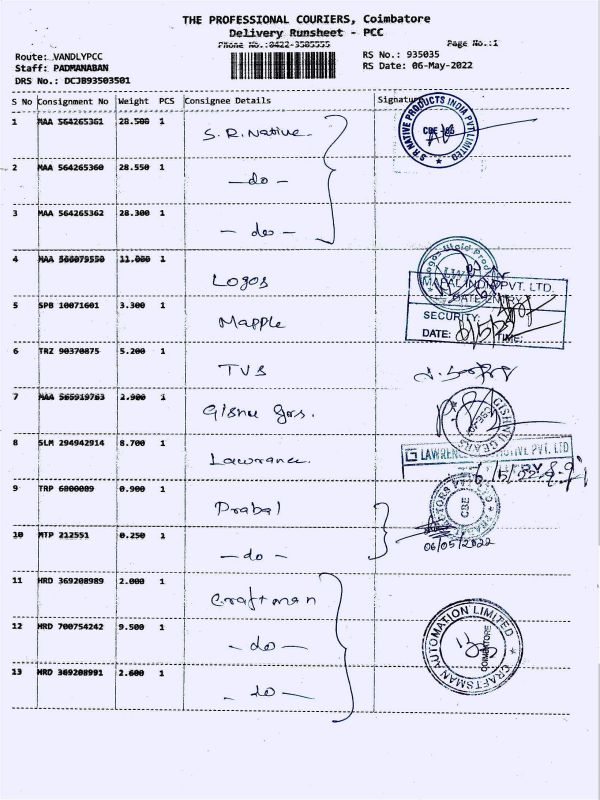 THE PROFESSIONAL COURIERS, Coimbatore
Delivery Runsheet - PCC
Phone No.:0422-3585555 Page No.:1
Route: VANDLYPCC RS No.: 935035
Staff: PADMANABAN RS Date: 06-May-2022
DRS No.: DCJB93503501
S No Consignment No Weight PCS Consignee Details Signature
1 MAA 564265361 28.500 1 S.R. Native
2 MAA 564265360 28.550 1 -do-
3 MAA 564265362 28.300 1 -do-
4 MAA 11.000 1 Logos
5 SPB 10071601 3.300 1 Mapple
6 TRZ 90370875 5.200 1 TVS
7 MAA 565919763 2.900 1
8 SLM 294942914 8.700 1 Lawrance
9 TRP 0.900 1 Prabal
10 MTP 212551 0.250 1 -do-
11 HRD 369208989 2.000 1 Craftman
12 HRD 700754242 9.500 1 -do-
13 HRD 369208991 2.600 1 -do-
S R NATIVE PRODUCTS INDIA PVT. LIMITED
CBE
MAPAL INDIA PVT. LTD.
GATE ENTRY
SECURITY:
DATE: TIME:
GISHNU GEARS
LAWREN PVT. LTD
CBE
06/05/2022
CRAFTSMAN AUTOMATION LIMITED
COIMBATORE